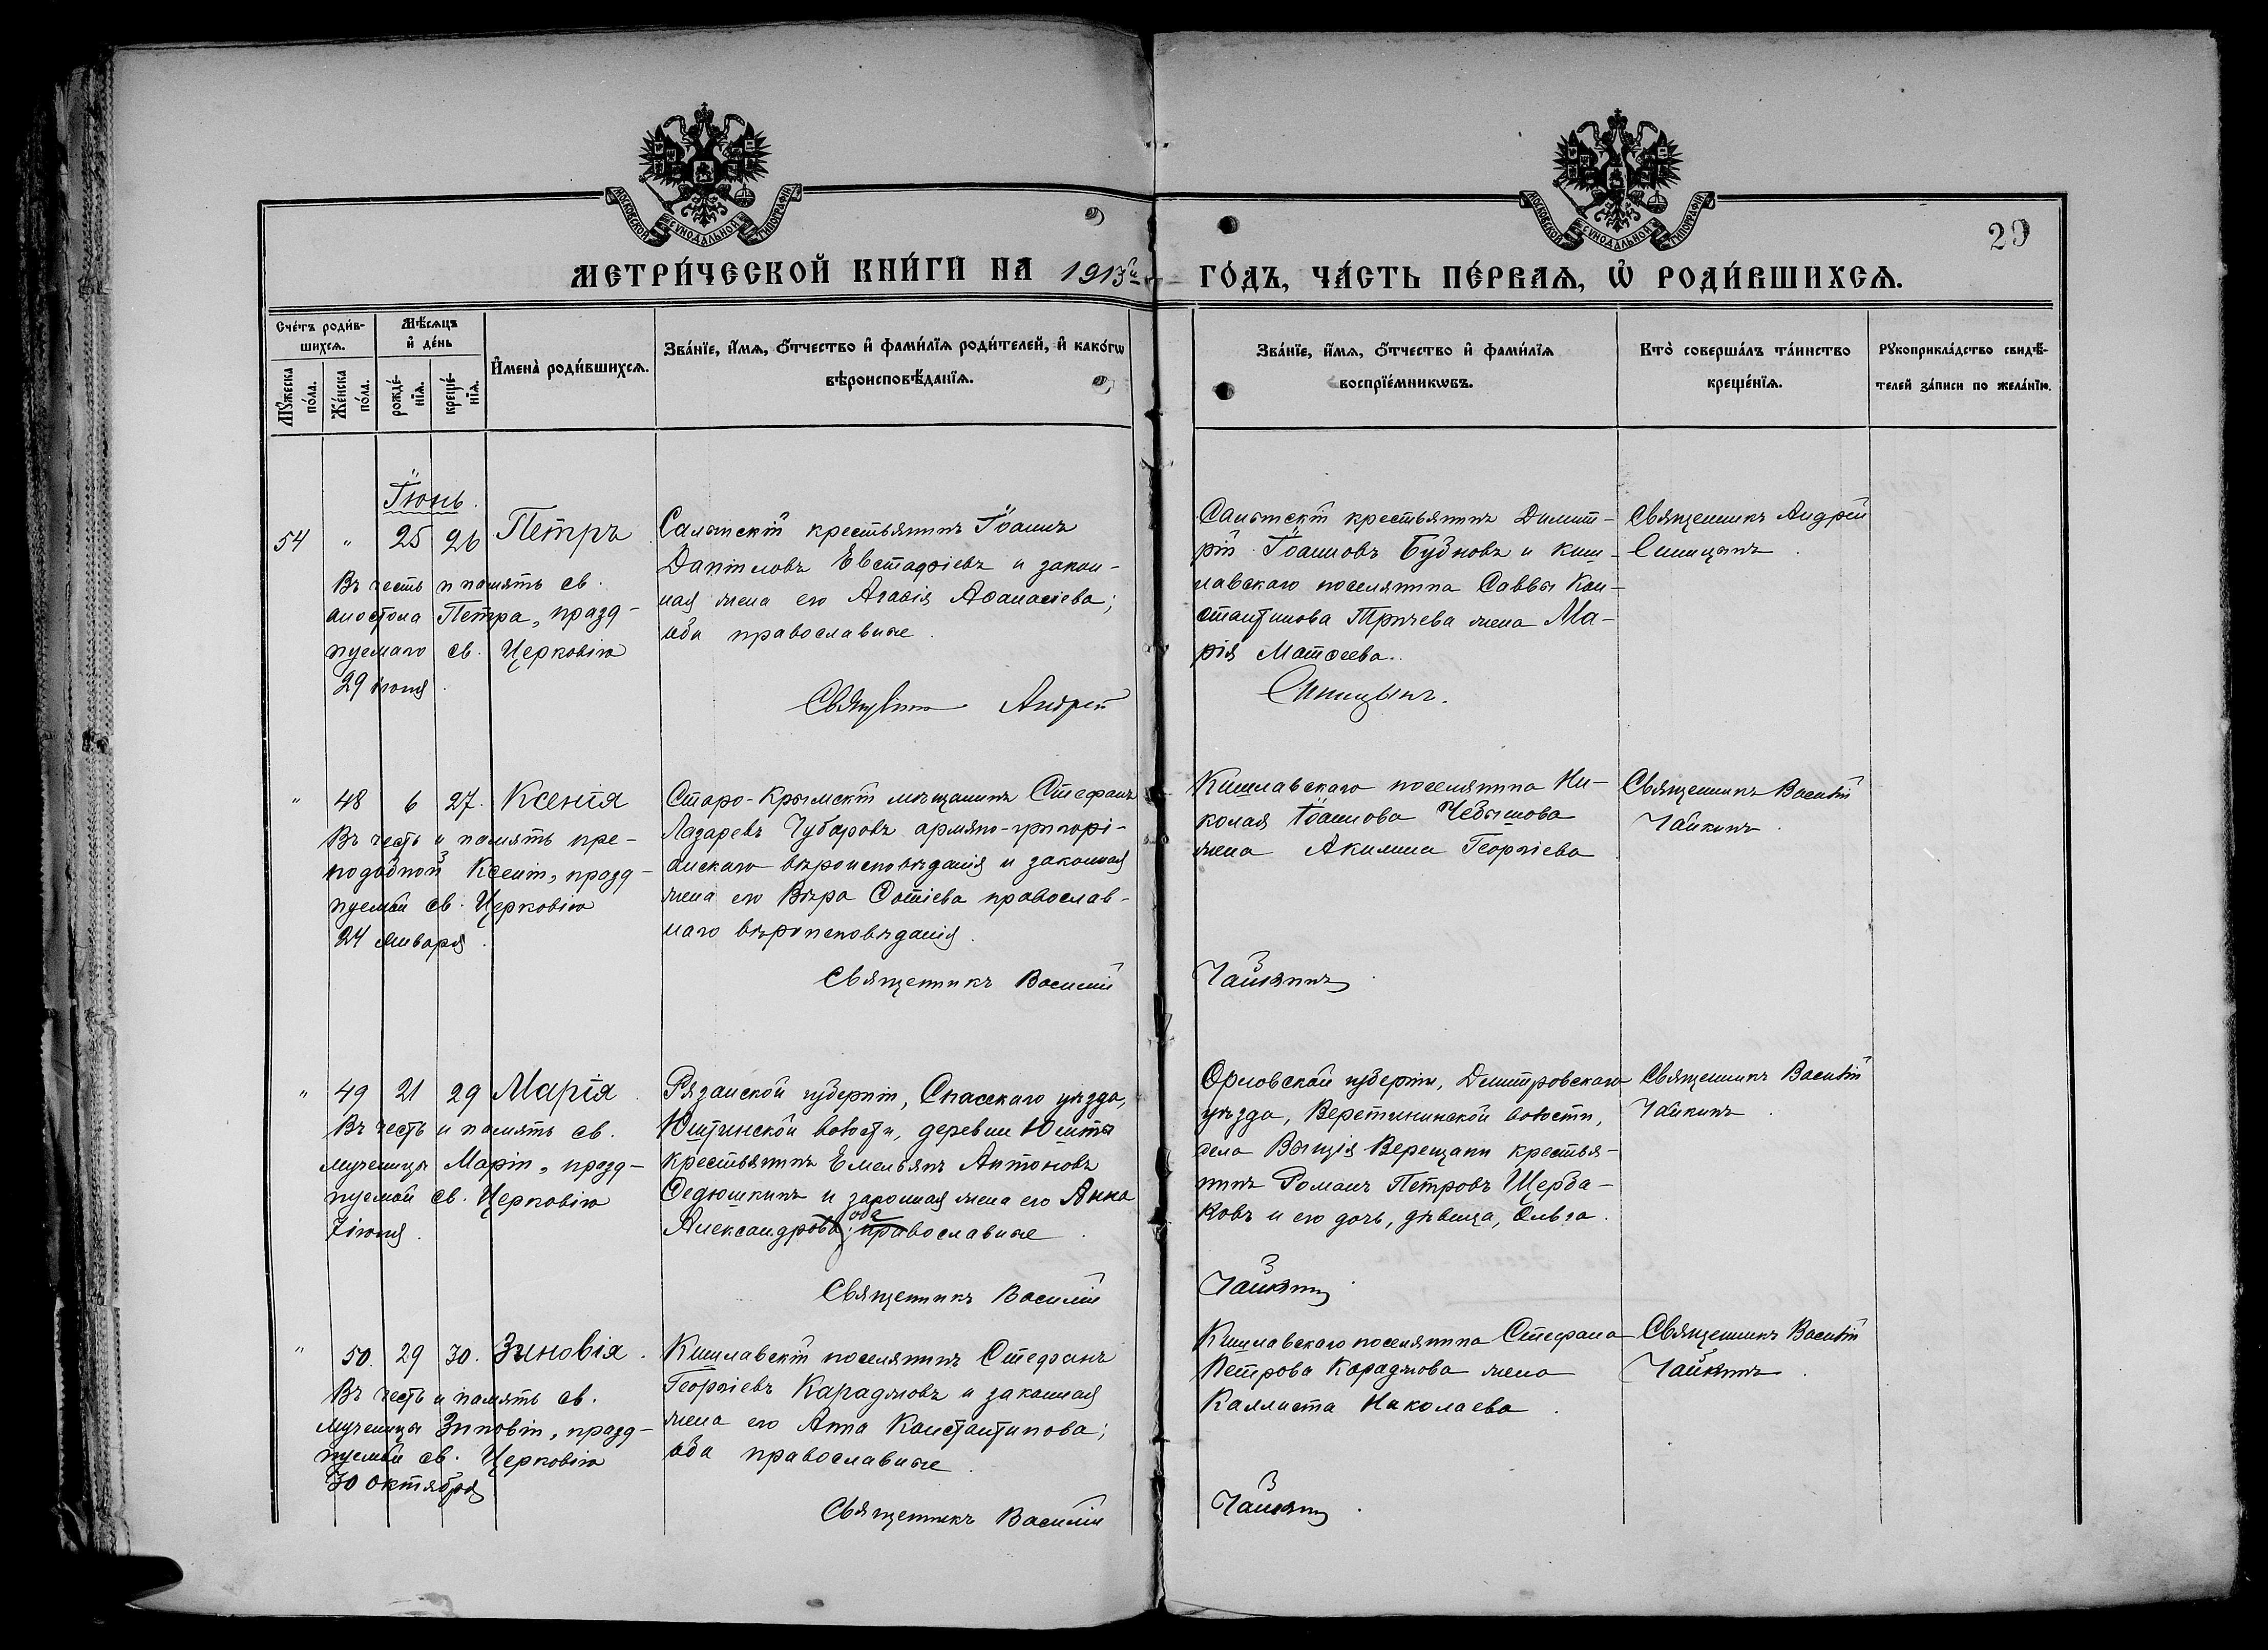 МОСКОВСКОЙ СѴНОДАЛЬНОЙ ТИПОГРАФІИ
МОСКОВСКОЙ СѴНОДАЛЬНОЙ ТИПОГРАФІИ
29
МЕТРИ́ЧЕСКОЙ КНИ́ГИ НА 1913й ГО́ДЪ, ЧА́СТЬ ПЕ́РВАѦ, Ѡ҆ РОДИ́ВШИХСѦ.
Сче́тъ роди́в-
шихсѧ.
Мꙋ́жеска по́ла.
Же́нска по́ла.
Мѣ́сѧцъ и҆ де́нь
рожде́-нїѧ.
креще́-нїѧ.
И҆мена̀ роди́вшихсѧ.
Зва́нїе, и҆́мѧ, ѻ҆́тчество и҆ фами́лїѧ роди́телей, и҆ како́гѡ
вѣроисповѣ́данїѧ.
Зва́нїе, и҆́мѧ, ѻ҆́тчество и҆ фами́лїѧ
воспрїе́мникѡвъ.
Кто̀ соверша́лъ та́инство
креще́нїѧ.
Рꙋкоприкла́дство свидѣ́-
телей за́писи по жела́нїю.
Іюнь.
54 " 25 26 Петръ
Въ честь и память св.
апостола Петра, празд-
нуемаго св. Церковію
29 іюня.
Салынскій крестьянинъ Іоаннъ
Даніиловъ Евстафіевъ и закон-
ная жена его Агавія Аѳанасіева;
оба православные.
Андрей
Салынскій крестьянинъ Димит-
рій Іоанновъ Бубновъ и Киш-
лавскаго поселянина Саввы Кон-
стантинова Тричева жена Ма-
рія Матѳеева.
Синицынъ.
Священникъ Андрей
Синицынъ.
" 48 6 27. Ксенія
Въ честь и память пре-
подобной Ксеніи, празд-
нуемой св. Церковію
24 января.
Старо-Крымскій мѣщанинъ Стефанъ
Лазаревъ Чубаровъ армяно-григорі-
анскаго вѣроисповѣданія и законная
жена его Вѣра Фотіева православ-
наго вѣроисповѣданія.
Священникъ Василій
Кишлавскаго поселянина Ни-
колая Іоаннова Чебышова
жена Акилина Георгіева
Чайкинъ.
Священникъ Василій
Чайкинъ.
" 49 21 29 Марія.
Въ честь и память св.
мученицы Маріи, празд-
нуемой св. Церковію
7 іюня.
Рязанской губерніи, Спасскаго уѣзда,
Юштинской волости, деревни Юшты
крестьянинъ Емельянъ Антоновъ
Ѳедюшкинъ и законная жена его Анна
Александрова; оба православные.
Священникъ Василій
Орловской губерніи, Дмитровскаго
уѣзда, Веретининской волости,
села Высція Верещаки крестья-
нинъ Романъ Петровъ Щерба-
ковъ и его дочь, дѣвица, Ольга.
Чайкинъ.
Священникъ Василій
Чайкинъ.
" 50. 29 30. Зиновія.
Въ честь и память св.
мученицы Зиновіи, празд-
нуемой св. Церковію
30 октября
Кишлавскій поселянинъ Стефанъ
Георгіевъ Караджовъ и законная
жена его Анна Константинова;
оба православные.
Священникъ Василій
Кишлавскаго поселянина Стефана
Петрова Караджова жена
Каллиста Николаева.
Чайкинъ.
Священникъ Василій
Чайкинъ.